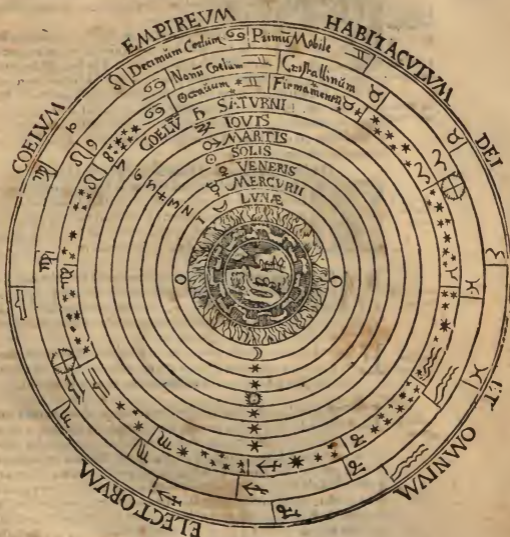 COELVM EMPIREVM HABITACVLVM DEI ET OMNIVM ELECTORVM
Decimum Coelum Primũ Mobile
Nonũ Coelum Cristallinũm
Octauum Firmamentũ
COELV̄ SATVRNI
IOVIS
MARTIS
SOLIS
VENERIS
MERCVRII
LVNÆ
7
6
5
4
3
2
1